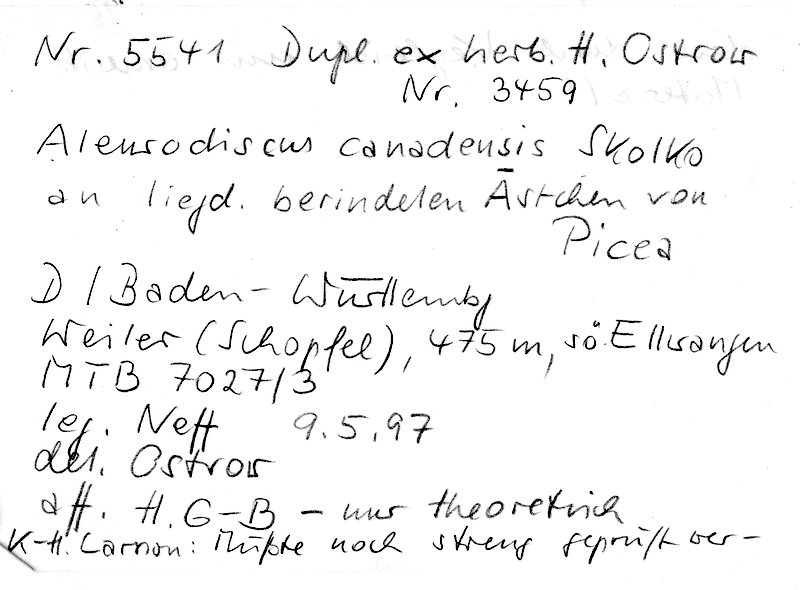 Nr. 5541 Dupl. ex herb. H. Ostrow
Nr. 3459
Aleurodiscus canadensis Skolko
an liegd. berindeten Ästchen von
Picea
D / Baden-Württembg
Weiler (Schopfel), 475 m, sö. Ellwangen
MTB 7027/3
leg. Neff 9.5.97
det. Ostrow
aff. H. G-B - nur theoretisch
K-H. Larsson: Müßte noch streng geprüft wer-